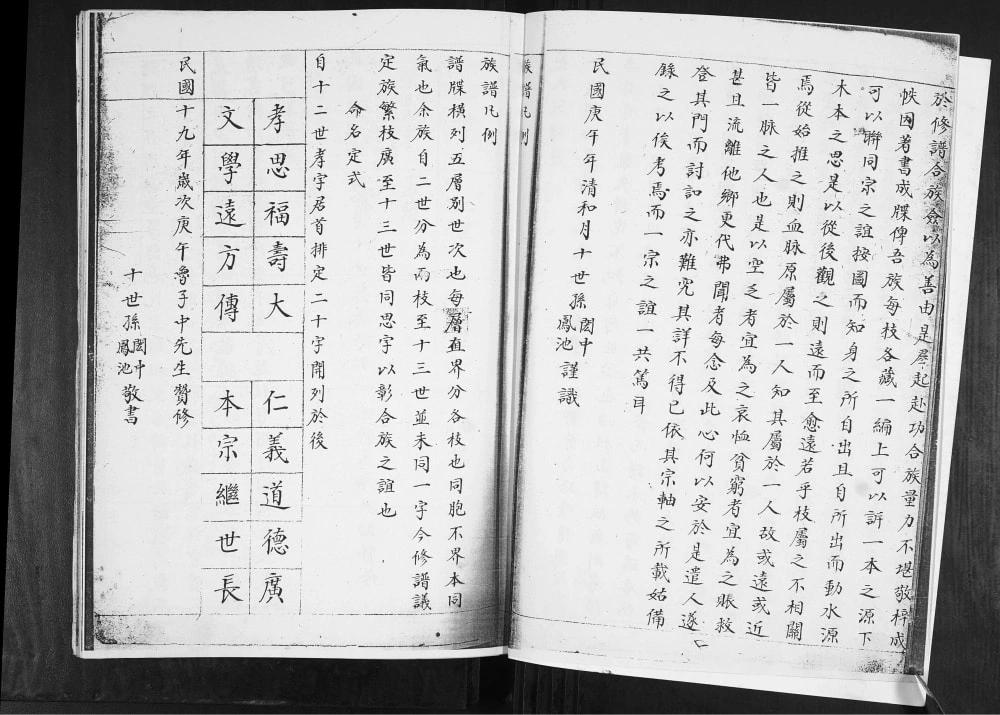 於修譜合族僉以為善由是屡起赴功合族量力不堪敬梓成
帙因著書成牒俾吾族每枝各藏一編上可以訢一本之源下
可以聯同宗之誼按圖而知身之所自出且自所出而動水源
木本之思是以從後觀之則遠而至愈遠若乎枝屬之不相關
焉從始推之則血脉原屬於一人知其屬於一人故或遠或近
皆一脉之人也是以空乏者宜為之哀恤貧窮者宜為之賑救
甚且流離他鄉更代弗聞者每念及此心何以安於是遣人遂
登其門而討訪之亦難究其詳不得已依其宗軸之所載姑備
錄之以俟考焉而一宗之誼一共篤耳
民國庚午年清和月十世孫 閎中 鳳池 謹識
族譜凡例
族譜凡例
譜牒橫列五層别世次也每層直界分各枝也同胞不界本同
氣也余族自二世分為兩枝至十三世並未同一字今修譜議
定族繁枝廣至十三世皆同思字以彰合族之誼也
命名定式
自十二世孝字居首排定二十字開列於後
孝思福壽大 仁義道德廣
文學遠方傳 本宗繼世長
民國十九年歲次庚午魯子中先生贊修
十世孫 閎中 鳳池 敬書